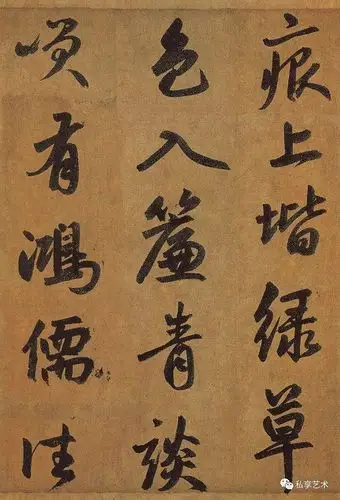 痕上堦緑草
色入簾青談
咲有鴻儒往
私享艺术